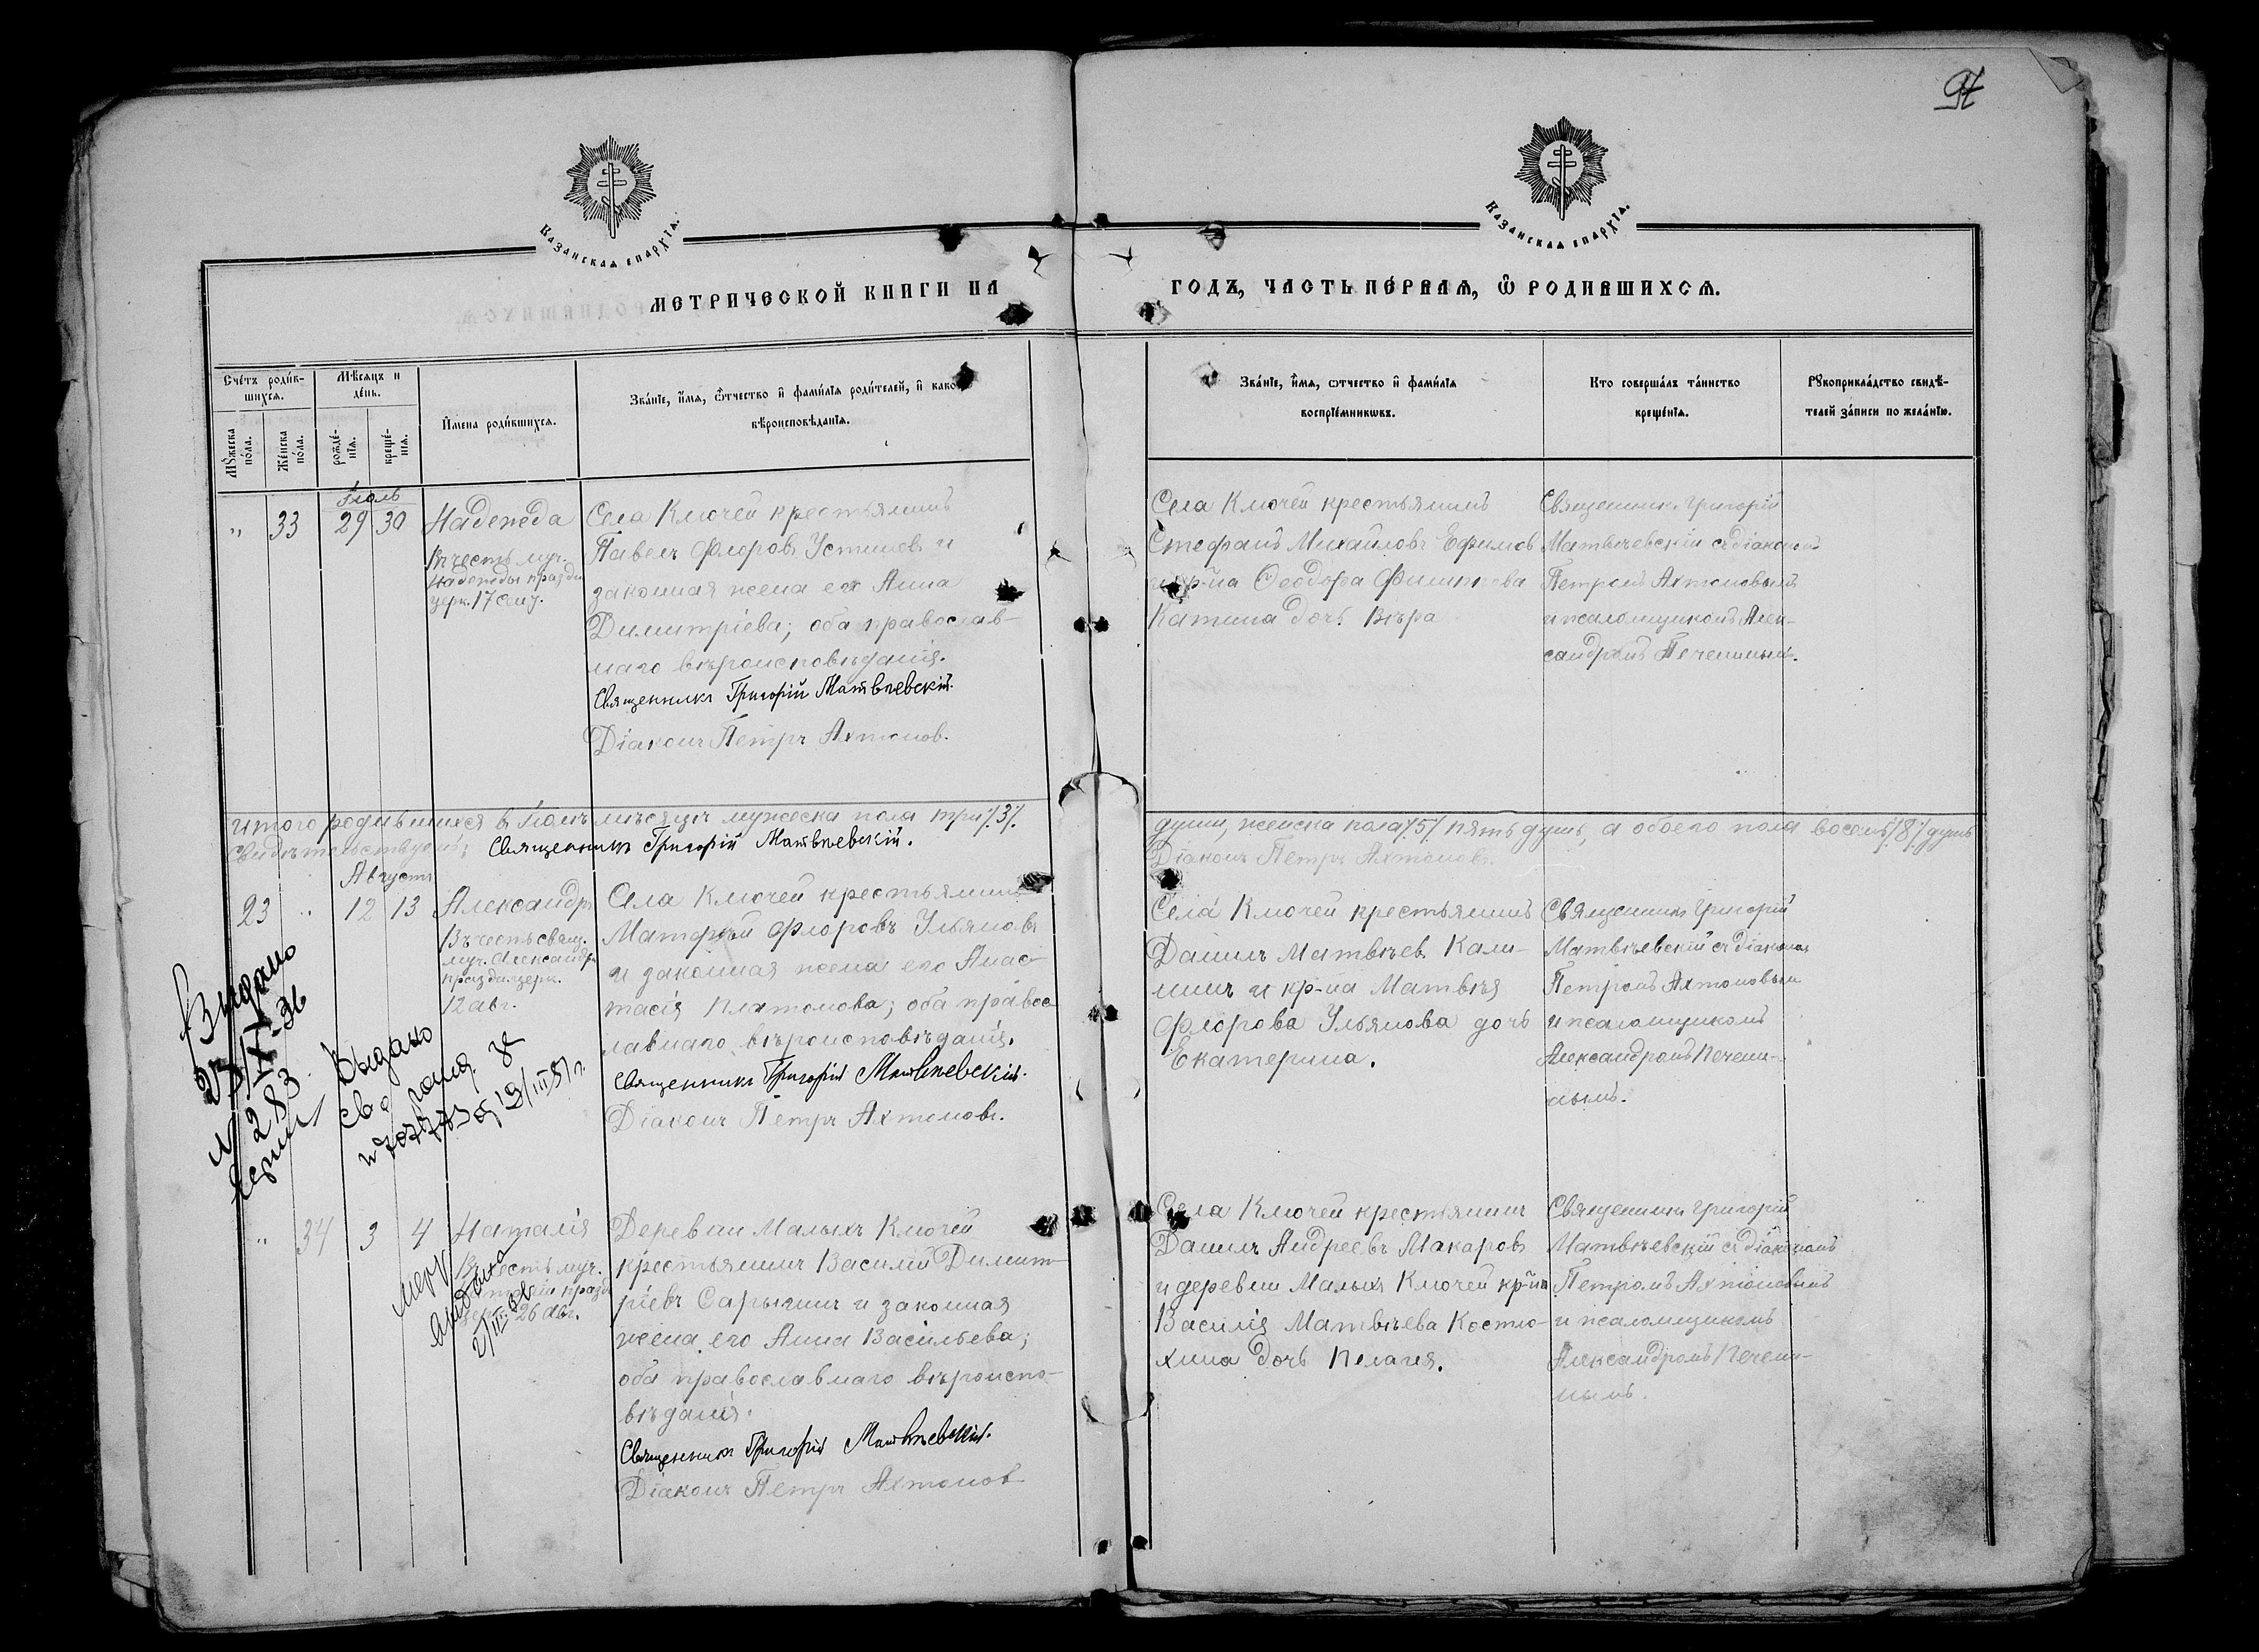 97
Казанская епархїа.
Казанская епархїа.
МЕТРИЧЕСКОЙ КНИГИ НА
ГОДЪ, ЧАСТЬ ПЕРВАЯ, Ѡ РОДИВШИХСЯ.
Счетъ родив-
шихся.
Мѣсяцъ и
день.
Мꙋжеска
пола.
Женска
пола.
рожде-
нїя.
креще-
нїя.
Имена родившихся.
Званїе, имя, ѿчество и фамилїя родителей, и какого
вѣроисповѣданїя.
Званїе, имя, ѿчество и фамилїя
воспрїемникѡвъ.
Кто совершалъ таинство
крещенїя.
Рꙋкоприкладство свидѣ-
телей записи по желанїю.
Іюль
„ 33 29 30 Надежда
Въ честь муч.
Надежды празд.
церк. 17 сент.
Села Ключей крестьянинъ
Павелъ Флоровъ Устиновъ и
законная жена его Анна
Димитріева; оба православ-
наго вѣроисповѣданія.
Священникъ Григорій Матвѣевскій.
Діаконъ Петръ Ахтоновъ.
Села Ключей крестьянинъ
Стефанъ Михайловъ Ефимовъ
и кр-на Ѳеодора Филиппова
Катина дочь Вѣра.
Священникъ Григорій
Матвѣевскій съ діакономъ
Петромъ Ахтоновымъ
и псаломщикомъ Алек-
сандромъ Печенинымъ.
Итого родившихся въ Іюлѣ мѣсяцѣ мужеска пола три /3/.
души, женска пола /5/ пять душъ, а обоего пола восемь /8/ душъ
Свидѣтельствуемъ; Священникъ Григорій Матвѣевскій.
Діаконъ Петръ Ахтоновъ.
Августъ
23 „ 12 13 Александръ
Въ честь свящ.
муч. Александра
празд. церк.
12 авг.
Села Ключей крестьянинъ
Матфей Флоровъ Ульяновъ
и законная жена его Анас-
тасія Платонова; оба правос-
лавнаго вѣроисповѣданія.
Священникъ Григорій Матвѣевскій.
Діаконъ Петръ Ахтоновъ.
Села Ключей крестьянинъ
Данилъ Матвѣевъ Кали-
нинъ и кр-на Матвѣя
Флорова Ульянова дочь
Екатерина.
Священникъ Григорій
Матвѣевскій съ діакономъ
Петромъ Ахтоновымъ
и псаломщикомъ
Александромъ Печени-
нымъ.
Выдано
N 283
Выдано
„ 34 3 4 Наталія
Въ честь муч.
Наталіи празд.
церк. 26 авг.
Деревни Малыхъ Ключей
крестьянинъ Василій Димит-
ріевъ Сарычинъ и законная
жена его Анна Васильева;
оба православнаго вѣроиспо-
вѣданія.
Священникъ Григорій Матвѣевскій.
Діаконъ Петръ Ахтоновъ
Села Ключей крестьянинъ
Данилъ Андреевъ Макаровъ
и деревни Малыхъ Ключей кр-на
Василія Матвѣева Костю-
хина дочь Пелагея.
Священникъ Григорій
Матвѣевскій съ діакономъ
Петромъ Ахтоновымъ
и псаломщикомъ
Александромъ Печени-
нымъ.